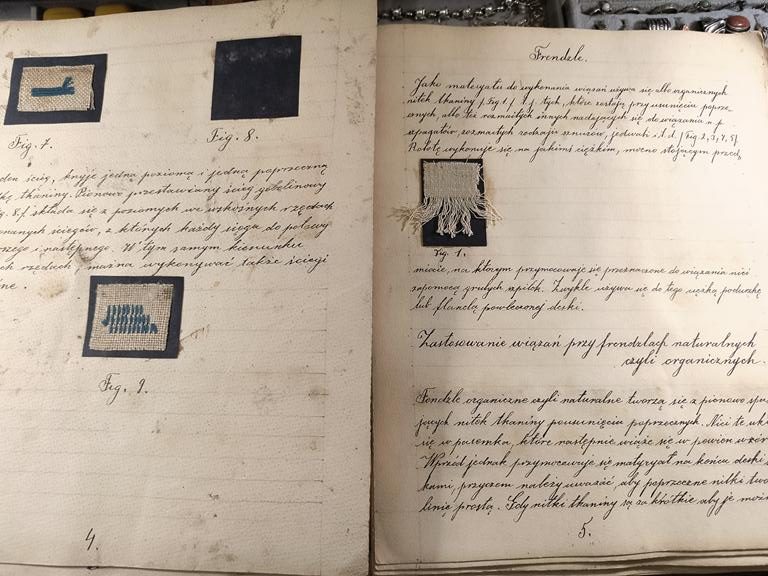 Fig. 7.
Fig. 8.
den ścieg, kryje jedną poziomą i jedną poprzeczną
tkaniny. Pionowo przestawiany ścieg gobelinowy
g. 8.f składa się z poziomych we wzkośnych rzędach
manych ściegów, z których każdy sięga do połowy
rzego i następnego. W tym samym kierunku
ch rzędach, można wykonywać także ściegi
ne.
Fig. 9.
4.
Frendzle.
Jako materyału do wykonania wiązań używa się albo organicznych
nitek tkaniny f. Fig. 1. f t. j. tych, które zostają przy usunięciu poprze-
cznych, albo też rozmaitych innych nadających się do wiązania n. p.
szpagatów, rozmaitych rodzaji sznurów, jedwabi i. t. d.
Robotę wykonuje się na jakimś ciężkim, mocno stojącym przed,
Fig. 1.
miocie, na którym przymocowuje się przeznaczone do wiązania nici
zapomocą grubych szpilek. Zwykle używa się do tego ciężką poduszkę
lub flanelą powleczonej deski.
Zastosowanie wiązań przy frendzlach naturalnych
czyli organicznych.
Fendzle organiczne czyli naturalne tworzą się z pionowo spa
jących nitek tkaniny po usunięciu poprzecznych. Nici te ukł
się w pasemka, które następnie wiąże się w pewien wzór
Wprzód jednak przymocowuje się matyryał na końcu deski
kami, przyczem należy uważać aby poprzeczne nitki two
linię prostą. Gdy nitki tkaniny są za krótkie aby je moż
5.